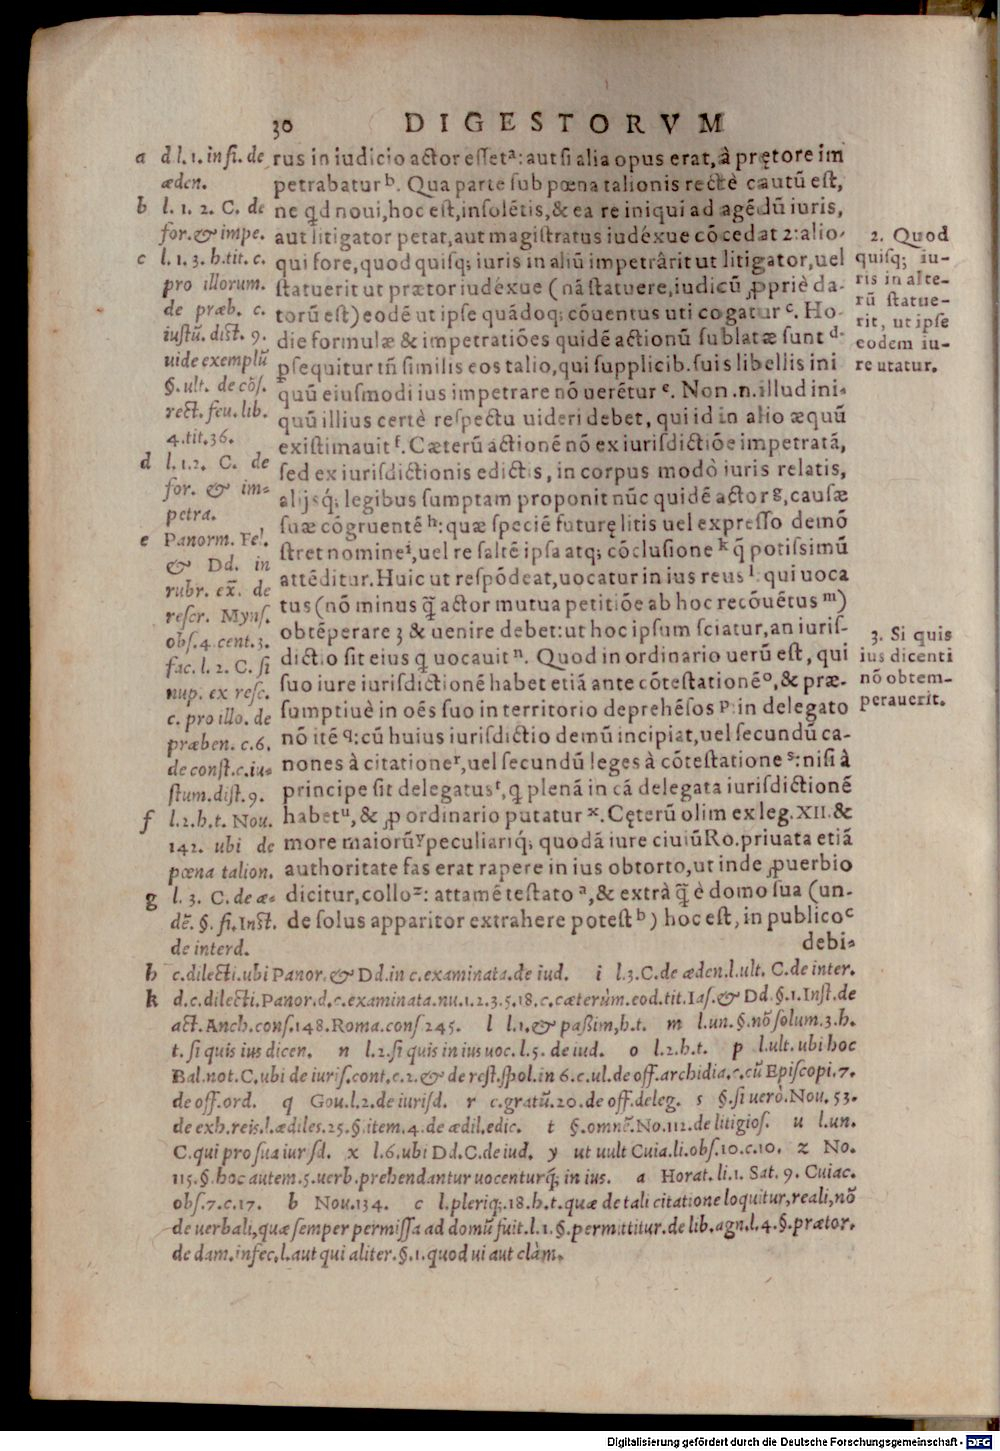 30 DIGESTORVM
rus in iudicio actor eſſet ᵃ: aut ſi alia opus erat, à prętore im
petrabatur ᵇ. Qua parte ſub pœna talionis rectè cautū eſt,
ne qd noui, hoc eſt, inſolētis, & ea re iniqui ad agēdū iuris,
aut litigator petat, aut magiſtratus iudéxue cōcedat 2: alio-
qui fore, quod quiſq; iuris in aliū impetrârit ut litigator, uel
ſtatuerit ut prætor iudéxue (nā ſtatuere, iudicū ꝓpriè da-
torū eſt) eodē ut ipſe quādoq; cōuentus uti cogatur ᶜ. Ho-
die formulæ & impetratiōes quidē actionū ſublatæ ſunt ᵈ·
ꝑſequitur tn̄ ſimilis eos talio, qui ſupplicib. ſuis libellis ini
quū eiuſmodi ius impetrare nō uerētur ᵉ. Non .n. illud ini-
quū illius certè reſpectu uideri debet, qui id in alio æquū
exiſtimauit ᶠ. Cæterū actionē nō ex iuriſdictiōe impetratā,
ſed ex iuriſdictionis edictis, in corpus modò iuris relatis,
alijsq́; legibus ſumptam proponit nūc quidē actor ᵍ, cauſæ
ſuæ cōgruentē ʰ: quæ ſpeciē futurę litis uel expreſſo demō
ſtret nomine ⁱ, uel re ſaltē ipſa atq; cōcluſione ᵏ q̄ potiſsimū
attēditur. Huic ut reſpōdeat, uocatur in ius reus ˡ: qui uoca
tus (nō minus q̄ actor mutua petitiōe ab hoc recōuētus ᵐ)
obtēperare 3 & uenire debet: ut hoc ipſum ſciatur, an iuriſ-
dictio ſit eius q uocauit ⁿ. Quod in ordinario uerū eſt, qui
ſuo iure iuriſdictionē habet etiā ante cōteſtationē ᵒ, & præ-
ſumptiuè in oēs ſuo in territorio deprehēſos ᵖ: in delegato
nō itē q: cū huius iuriſdictio demū incipiat, uel ſecundū ca-
nones à citatione ʳ, uel ſecundū leges à cōteſtatione ˢ: niſi à
principe ſit delegatus ᵗ, q plenā in cā delegata iuriſdictionē
habet ᵘ, & ꝓ ordinario putatur ˣ. Cęterū olim ex leg. XII. &
more maiorū ʸ peculiariq́; quodā iure ciuiū Ro. priuata etiā
authoritate fas erat rapere in ius obtorto, ut inde ꝓuerbio
dicitur, collo ᶻ: attamē teſtato ᵃ, & extrà q̄ è domo ſua (un-
de ſolus apparitor extrahere poteſt ᵇ) hoc eſt, in publico ᶜ
debi-
a d l. 1. in fi. de
æden.
b l. 1. 2. C. de
for. & impe.
c l. 1. 3. h. tit. c.
pro illorum.
de præb. c.
iuſtū. diſt. 9.
uide exemplū
§. ult. de cōſ.
rect. feu. lib.
4. tit. 36.
d l. 1.2. C. de
for. & im-
petra.
e Panorm. Fel.
& Dd. in
rubr. ex̄. de
reſcr. Mynſ.
obſ. 4. cent. 3.
fac. l. 2. C. ſi
nup. ex reſc.
c. pro illo. de
præben. c. 6.
de conſt. c. iu-
ſtum. diſt. 9.
f l. 2. h. t. Nou.
142. ubi de
pœna talion.
g l. 3. C. de æ-
dē. §. fi. Inſt.
de interd.
2. Quod
quiſq; iu-
ris in alte-
rū ſtatue-
rit, ut ipſe
eodem iu-
re utatur.
3. Si quis
ius dicenti
nō obtem-
perauerit.
h c. dilecti. ubi Panor. & Dd. in c. examinata. de iud. i l. 3. C. de æden. l. ult. C. de inter.
k d. c. dilecti. Panor. d. c. examinata. nu. 1. 2. 3. 5. 18. c. cæterùm. eod. tit. Iaſ. & Dd. §. 1. Inſt. de
act. Anch. conſ. 148. Roma. conſ 245. l l. 1. & paßim, h. t. m l. un. §. nō ſolum. 3. h.
t. ſi quis ius dicen. n l. 2. ſi quis in ius uoc. l. 5. de iud. o l. 2. h. t. p l. ult. ubi hoc
Bal. not. C. ubi de iuriſ. cont. c. 2. & de reſt. ſpol. in 6. c. ul. de off. archidia. c. cū Epiſcopi. 7.
de off. ord. q Gou. l. 2. de iuriſd. r c. gratū. 20. de off. deleg. s §. ſi uerò. Nou. 53.
de exh. reis. l. ædiles. 25. §. item. 4. de ædil. edic. t §. omnē. No. 112. de litigioſ. u l. un.
C. qui pro ſua iur ſd. x l. 6. ubi Dd. C. de iud. y ut uult Cuia. li. obſ. 10. c. 10. z No.
115. §. hoc autem. 5. uerb. prehendantur uocenturq́; in ius. a Horat. li. 1. Sat. 9. Cuiac.
obſ. 7. c. 17. b Nou. 134. c l. pleriq;. 18. h. t. quæ de tali citatione loquitur, reali, nō
de uerbali, quæ ſemper permiſſa ad domū fuit. l. 1. §. permittitur. de lib. agn. l. 4. §. prætor.
de dam. infec. l. aut qui aliter. §. 1. quod ui aut clàm.
Digitalisierung gefördert durch die Deutsche Forschungsgemeinschaft - DFG